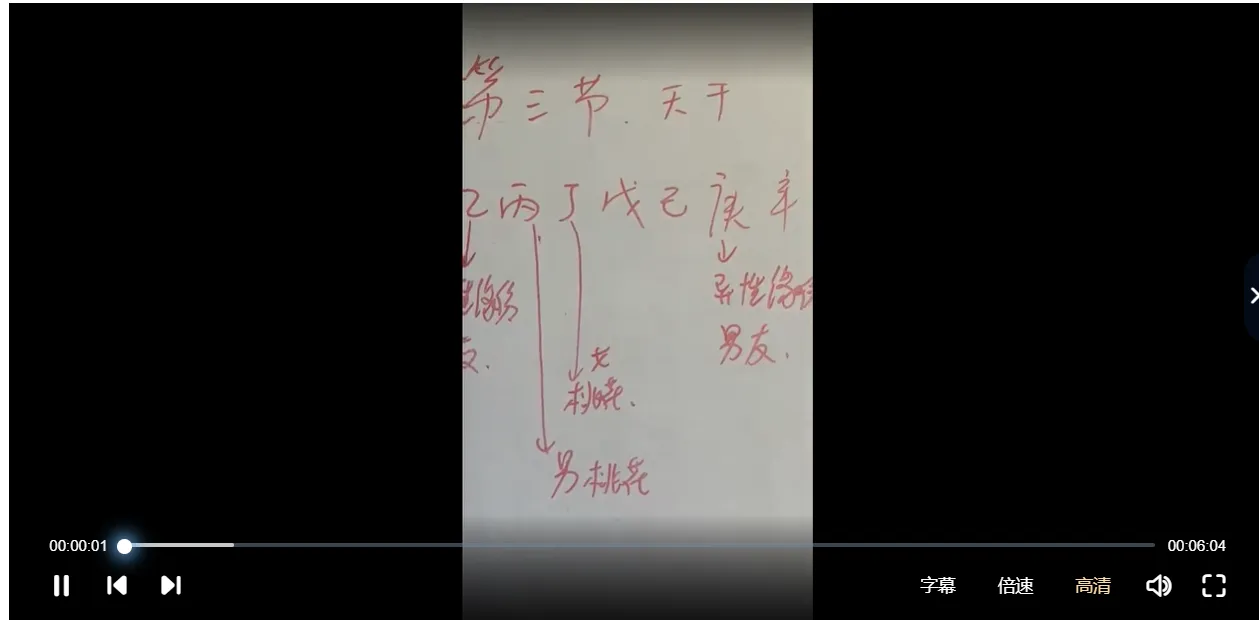 第三节.天干
乙丙丁戊己庚辛
性缘份
友.
异性缘份
男友.
女
桃花.
男桃花
00:00:01
00:06:04
字幕 倍速 高清